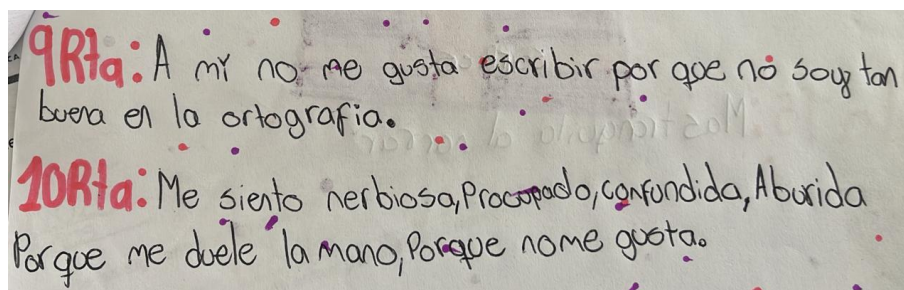 9Rta: A mí no me gusta escribir por que no soy tan
buena en la ortografia.
10Rta: Me siento nerbiosa, Procopado, confundida, Aburida
Porque me duele la mano, Porque nome gusta.